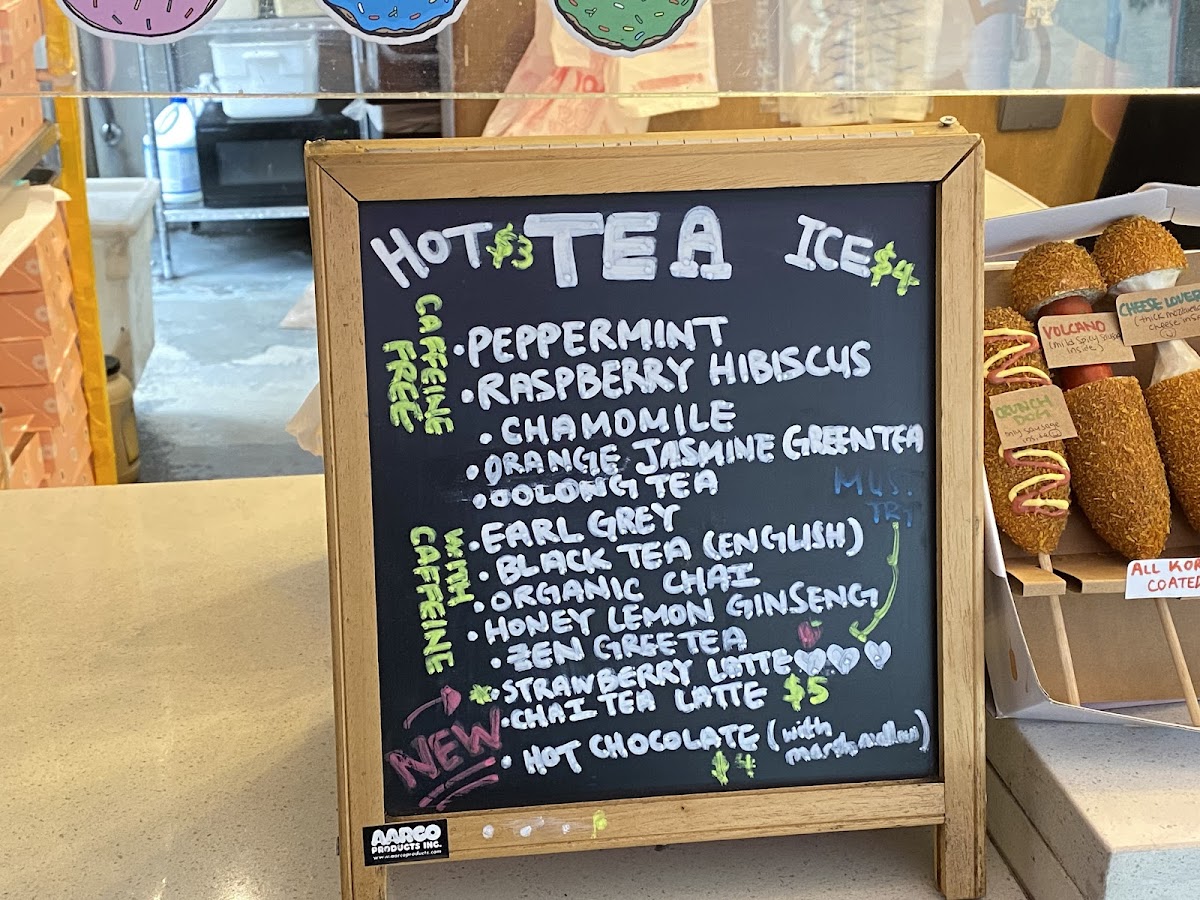 HOT $3 TEA ICE $4
CAFFEINE FREE
• PEPPERMINT
• RASPBERRY HIBISCUS
• CHAMOMILE
• ORANGE JASMINE GREEN TEA
• OOLONG TEA
MUS. TRT
WITH CAFFEINE
• EARL GREY
• BLACK TEA (ENGLISH)
• ORGANIC CHAI
• HONEY LEMON GINSENG
• ZEN GREETEA
• STRAWBERRY LATTE
• CHAI TEA LATTE $5
NEW
• HOT CHOCOLATE (with marshmallow)
$4
AARCO
PRODUCTS INC.
www.aarcoproducts.com
VOLCANO
(mild spicy
inside)
CHEESE LOVER
(thick mozzarella
cheese inside
CRUNCH
DOG
only sausage
inside
ALL KOR
COATED